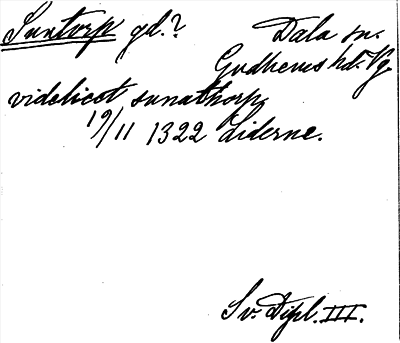 Suntorp gd.? Dala sn.
Gudhems hd. Vg.
videlicet sunathorp
19/11 1322 Liderne.
Sv. Dipl. III.